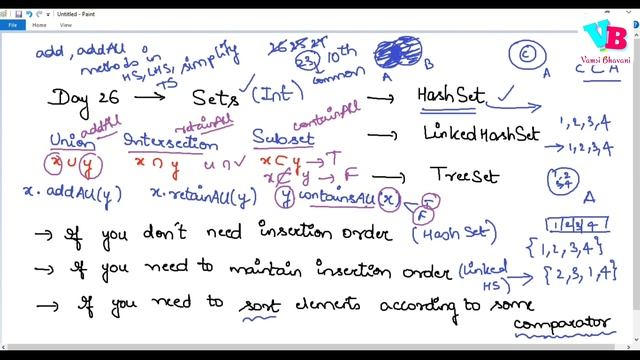 Untitled - Paint
File Home View
VB
Vamsi Bhavani
add, addAll
methods in
HS, LHS,
TS
simplify
26 25 24
23, 10th
common
A B
C A
C ⊂ A
Day 26 → Sets (Int) → HashSet
addAll retainAll containsAll
Union Intersection Subset → LinkedHashSet
1, 2, 3, 4
→ 1, 2, 3, 4
x ∪ y x ∩ y u ∩ x ⊂ y → T
x ⊄ y → F → TreeSet
1, 2
3, 4
A
x.addAll(y) x.retainAll(y) y containsAll (x) T
F
1 2 3 4
→ If you don't need insertion order (HashSet)
{1, 2, 3, 4}
→ If you need to maintain insertion order (Linked HS) → {2, 3, 1, 4}
→ If you need to sort elements according to some
comparator